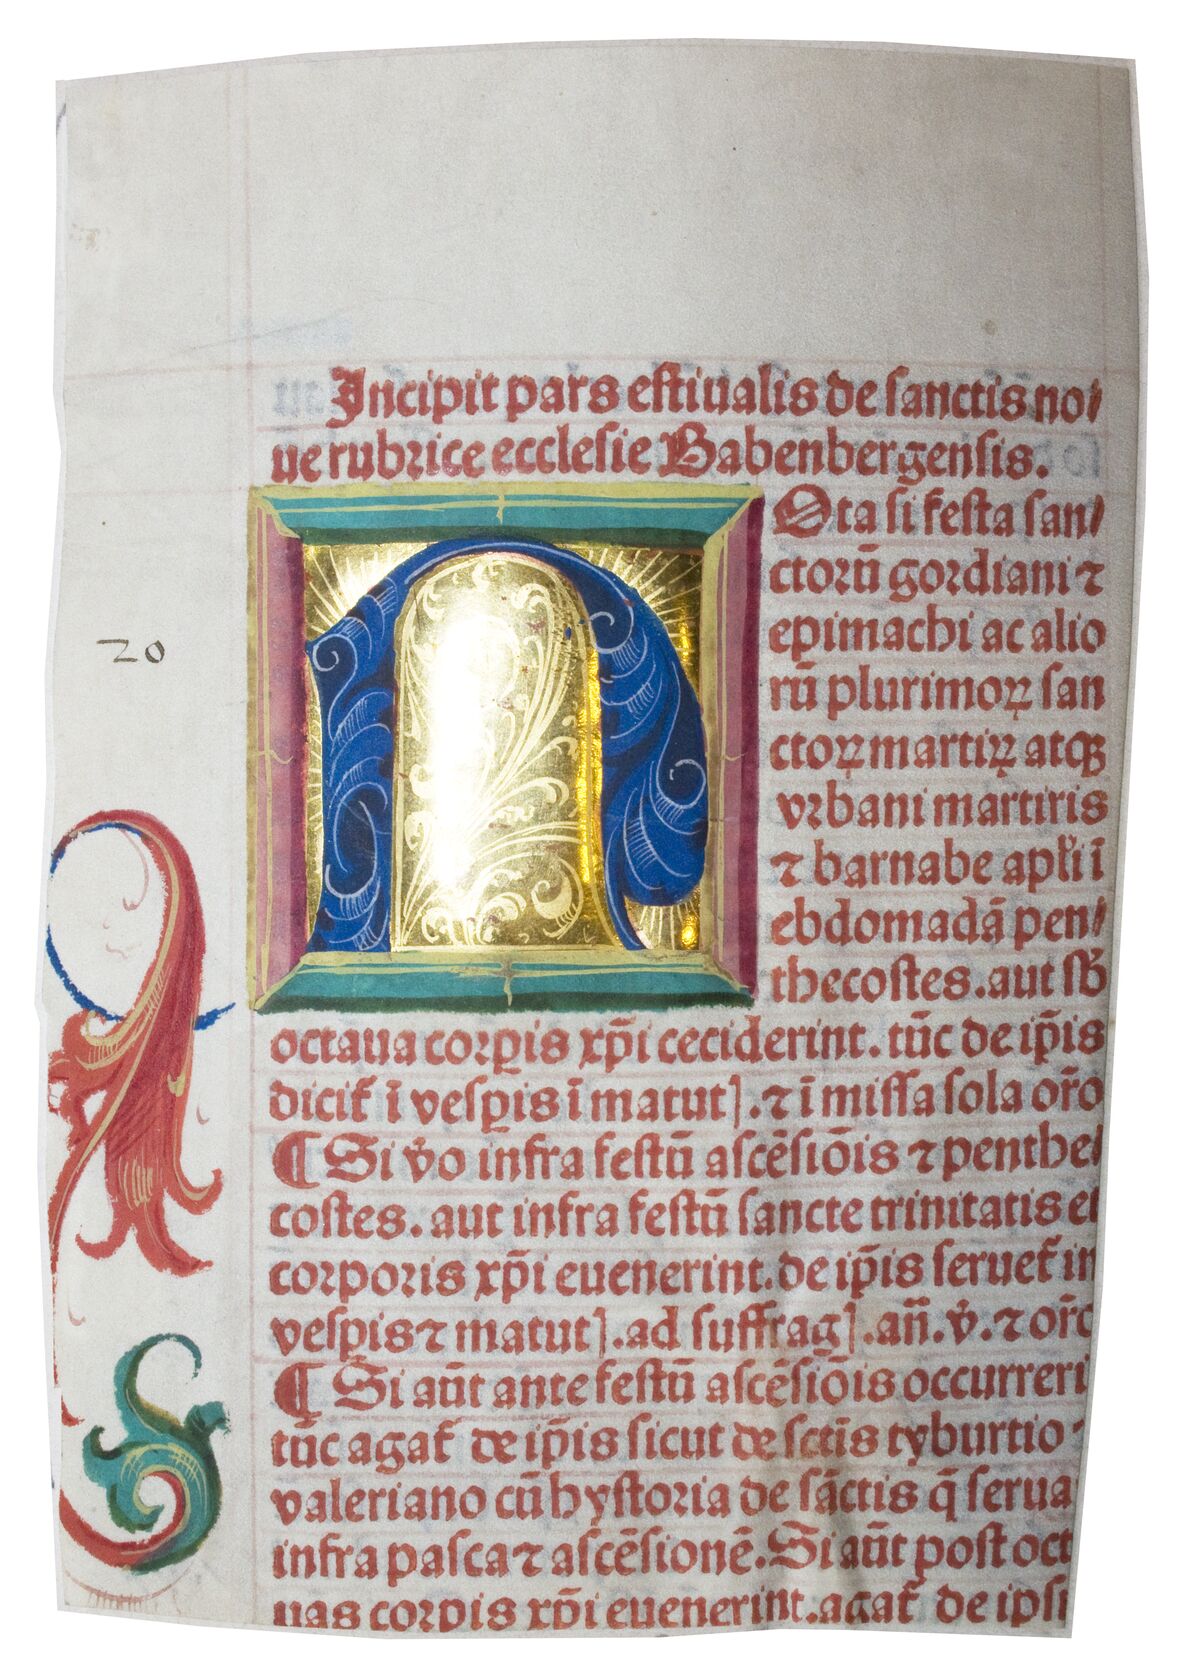 Incipit pars estiualis de sanctis no⸗
ue rubrice ecclesie Babenbergensis.
N
Ota si festa san⸗
ctorū gordiani ⁊
epimachi ac alio
rū plurimoꝝ san
ctoꝝ martiꝝ atqꝫ
vrbani martiris
⁊ barnabe apl̄i ī
ebdomadā pen⸗
thecostes. aut sb̄
20
octaua corꝑis xp̄i ceciderint. tūc de ip̄is
dicit᷑ ī vesꝑis ī matut]. ⁊ ī missa sola or̄o
¶ Si v̄o infra festū ascēsiōis ⁊ penthe⸗
costes. aut infra festū sancte trinitatis et
corporis xp̄i euenerint. de ip̄is seruet᷑ in
vesꝑis ⁊ matut]. ad suffrag]. an̄. v̄. ⁊ or̄o
¶ Si aūt ante festū ascēsiōis occurreri
tūc agat᷑ de ip̄is sicut de sctīs tyburtio ⁊
valeriano cū hystoria de sāctis q̄ serua
infra pasca ⁊ ascēsionē. Si aūt post oct
uas corꝑis xp̄i euenerint. agat᷑ de ipsi